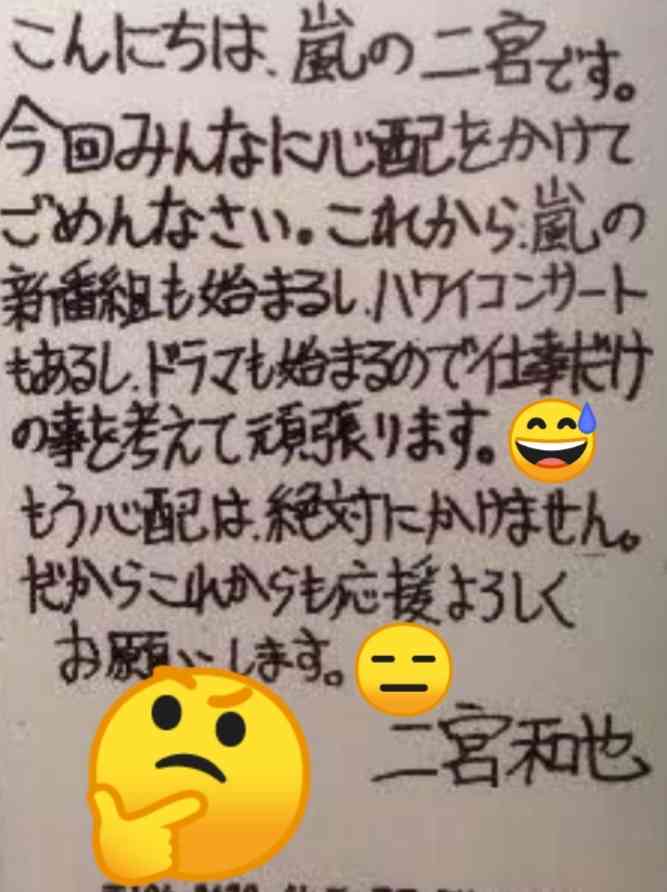 こんにちは、嵐の二宮です。
今回みんなに心配をかけて
ごめんなさい。これから、嵐の
新番組も始まるし、ハワイコンサート
もあるし、ドラマも始まるので仕事だけ
の事を考えて頑張ります。
もう心配は、絶対にかけません。
だからこれからも応援よろしく
お願いします。
二宮和也